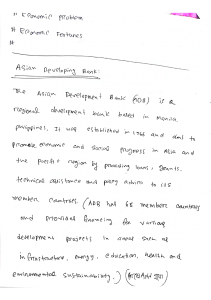 # Economic Problem
# Economic Features
#
Asian Developing Bank:
The Asian Development Bank (ADB) is a
regional development bank based in Manila
Philippines, It was established in 1966 and aims to
promote economic and social progress in Asia and
the pacific region by providing loans, grants,
technical assistance and policy advice to its
member countries. (ADB has 68 members countries
and provides financing for various
development projects in areas such as
infrastructure, energy, education, health and
environmental sustainability.)